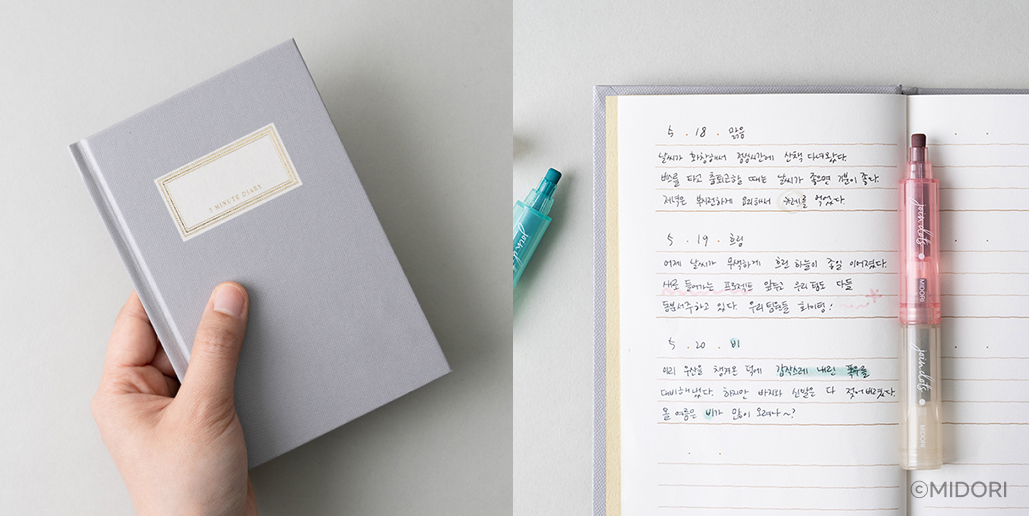 5 MINUTE DIARY
5 . 18 . 맑음
날씨가 화창해서 점심시간에 산책 다녀왔다.
버스를 타고 출퇴근할 때는 날씨가 좋으면 기분이 좋다.
저녁은 부지런하게 요리해서 카레를 먹었다
5 . 19 . 흐림
어제 날씨가 무색하게 흐린 하늘이 종일 이어졌다.
새로 들어가는 프로젝트 앞두고 우리팀도 다들
동분서주하고 있다. 우리팀원들 화이팅!
5 . 20 . 비
미리 우산을 챙겨온 덕에 갑작스레 내린 폭우를
대비해냈다. 하지만 바지와 신발은 다 젖어버렸다.
올 여름은 비가 많이 오려나~?
MIDORI
MIDORI
©MIDORI